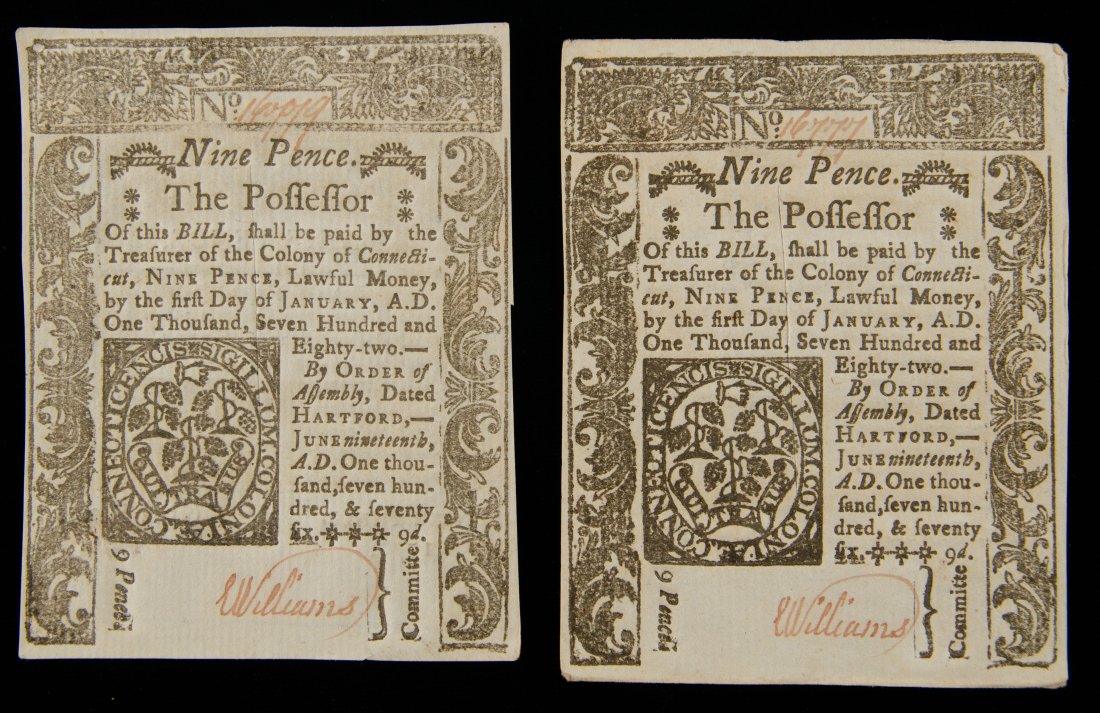 No. 16779
Nine Pence.
The Poſſeſſor
Of this BILL, ſhall be paid by the
Treaſurer of the Colony of Connecti-
cut, NINE PENCE, Lawful Money,
by the firſt Day of JANUARY, A.D.
One Thouſand, Seven Hundred and
Eighty-two.—
By ORDER of
Aſſembly, Dated
HARTFORD,—
JUNE nineteenth,
A.D. One thou-
ſand, ſeven hun-
dred, & ſeventy
ſix. 9d.
SIGILLUM. COLONIÆ. CONNECTICENCIS
9 Pence
EWilliams
Committe
No. 16777
Nine Pence.
The Poſſeſſor
Of this BILL, ſhall be paid by the
Treaſurer of the Colony of Connecti-
cut, NINE PENCE, Lawful Money,
by the firſt Day of JANUARY, A.D.
One Thouſand, Seven Hundred and
Eighty-two.—
By ORDER of
Aſſembly, Dated
HARTFORD,—
JUNE nineteenth,
A.D. One thou-
ſand, ſeven hun-
dred, & ſeventy
ſix. 9d.
SIGILLUM. COLONIÆ. CONNECTICENCIS
9 Pence
EWilliams
Committe